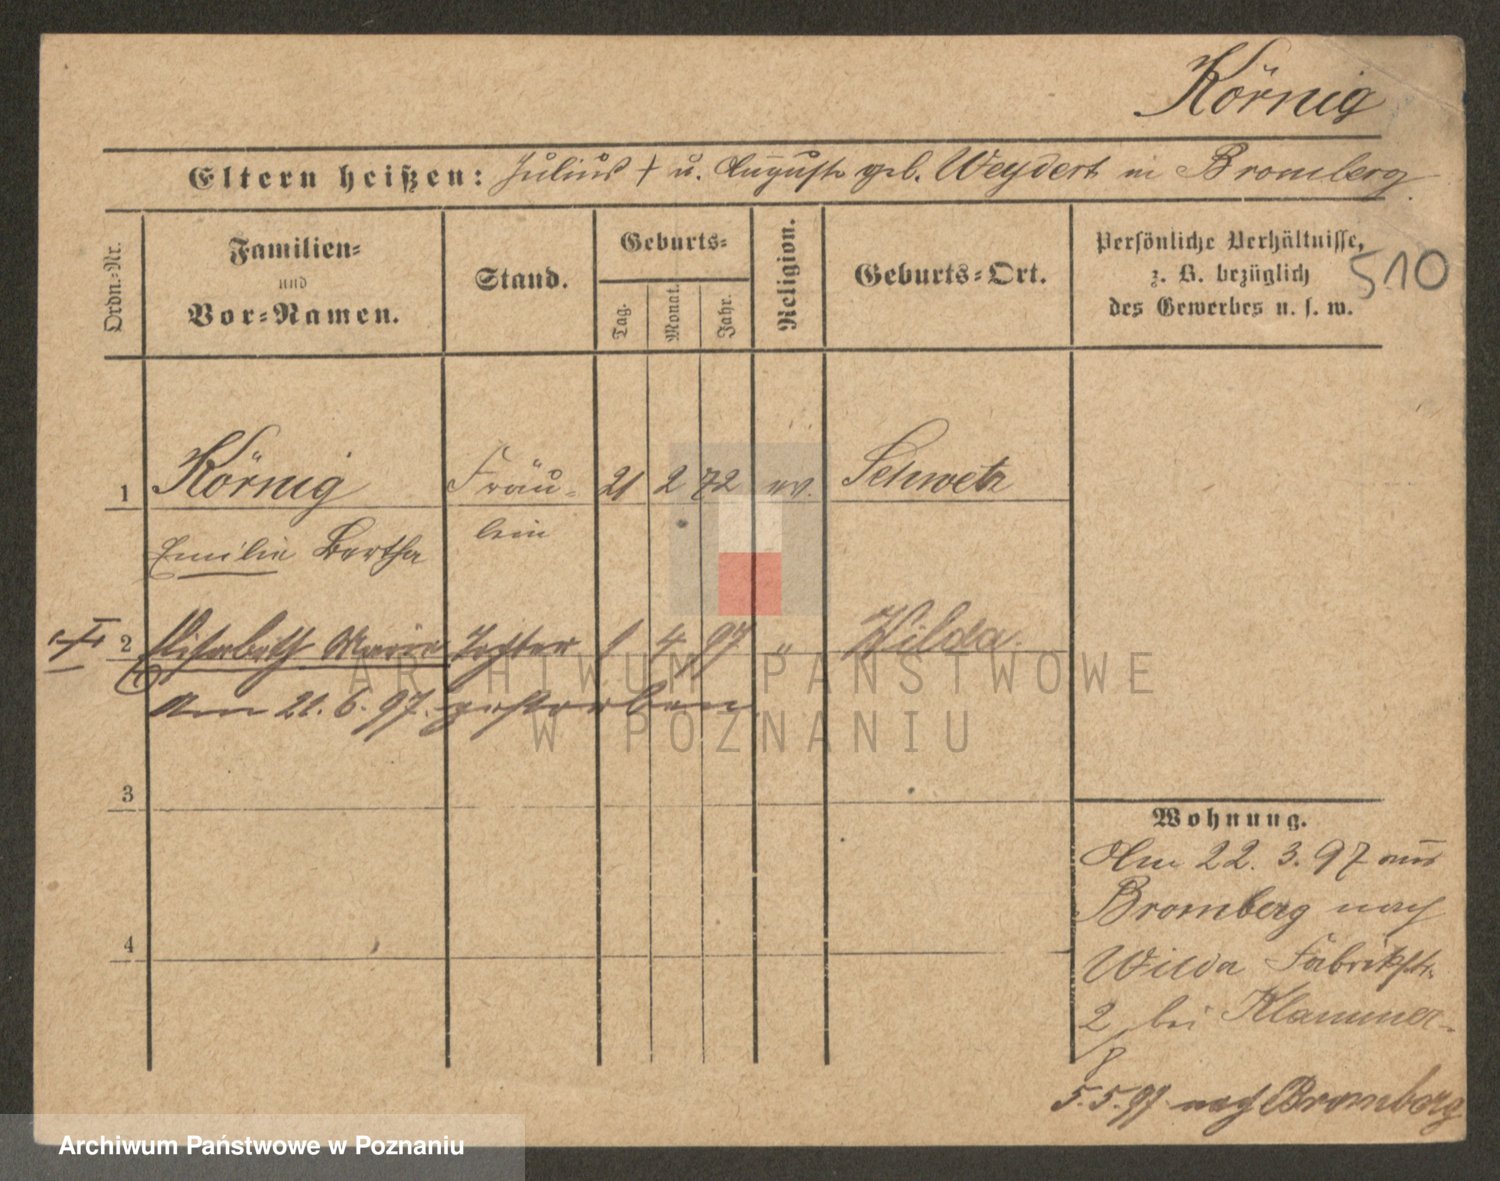 Körnig
Eltern heißen: Julius † u. Auguste geb. Weydert in Bromberg
510
Ordn.-Nr.
Familien-
und
Vor-Namen.
Stand.
Geburts-
Tag.
Monat.
Jahr.
Religion.
Geburts-Ort.
Persönliche Verhältnisse,
z. B. bezüglich
des Gewerbes u. s. w.
1 Körnig Fräu- 21 2 72 ev. Schwetz
Emilie Bertha lein
2 Elisabeth Marie Tochter 1 4 97 " Wilda
am 21. 6. 97. gestorben
3
4
Wohnung.
Am 22. 3. 97 aus
Bromberg nach
Wilda Fabrikstr.
2 bei Klammer
5. 5. 97 nach Bromberg
ARCHIWUM PAŃSTWOWE
W POZNANIU
Archiwum Państwowe w Poznaniu